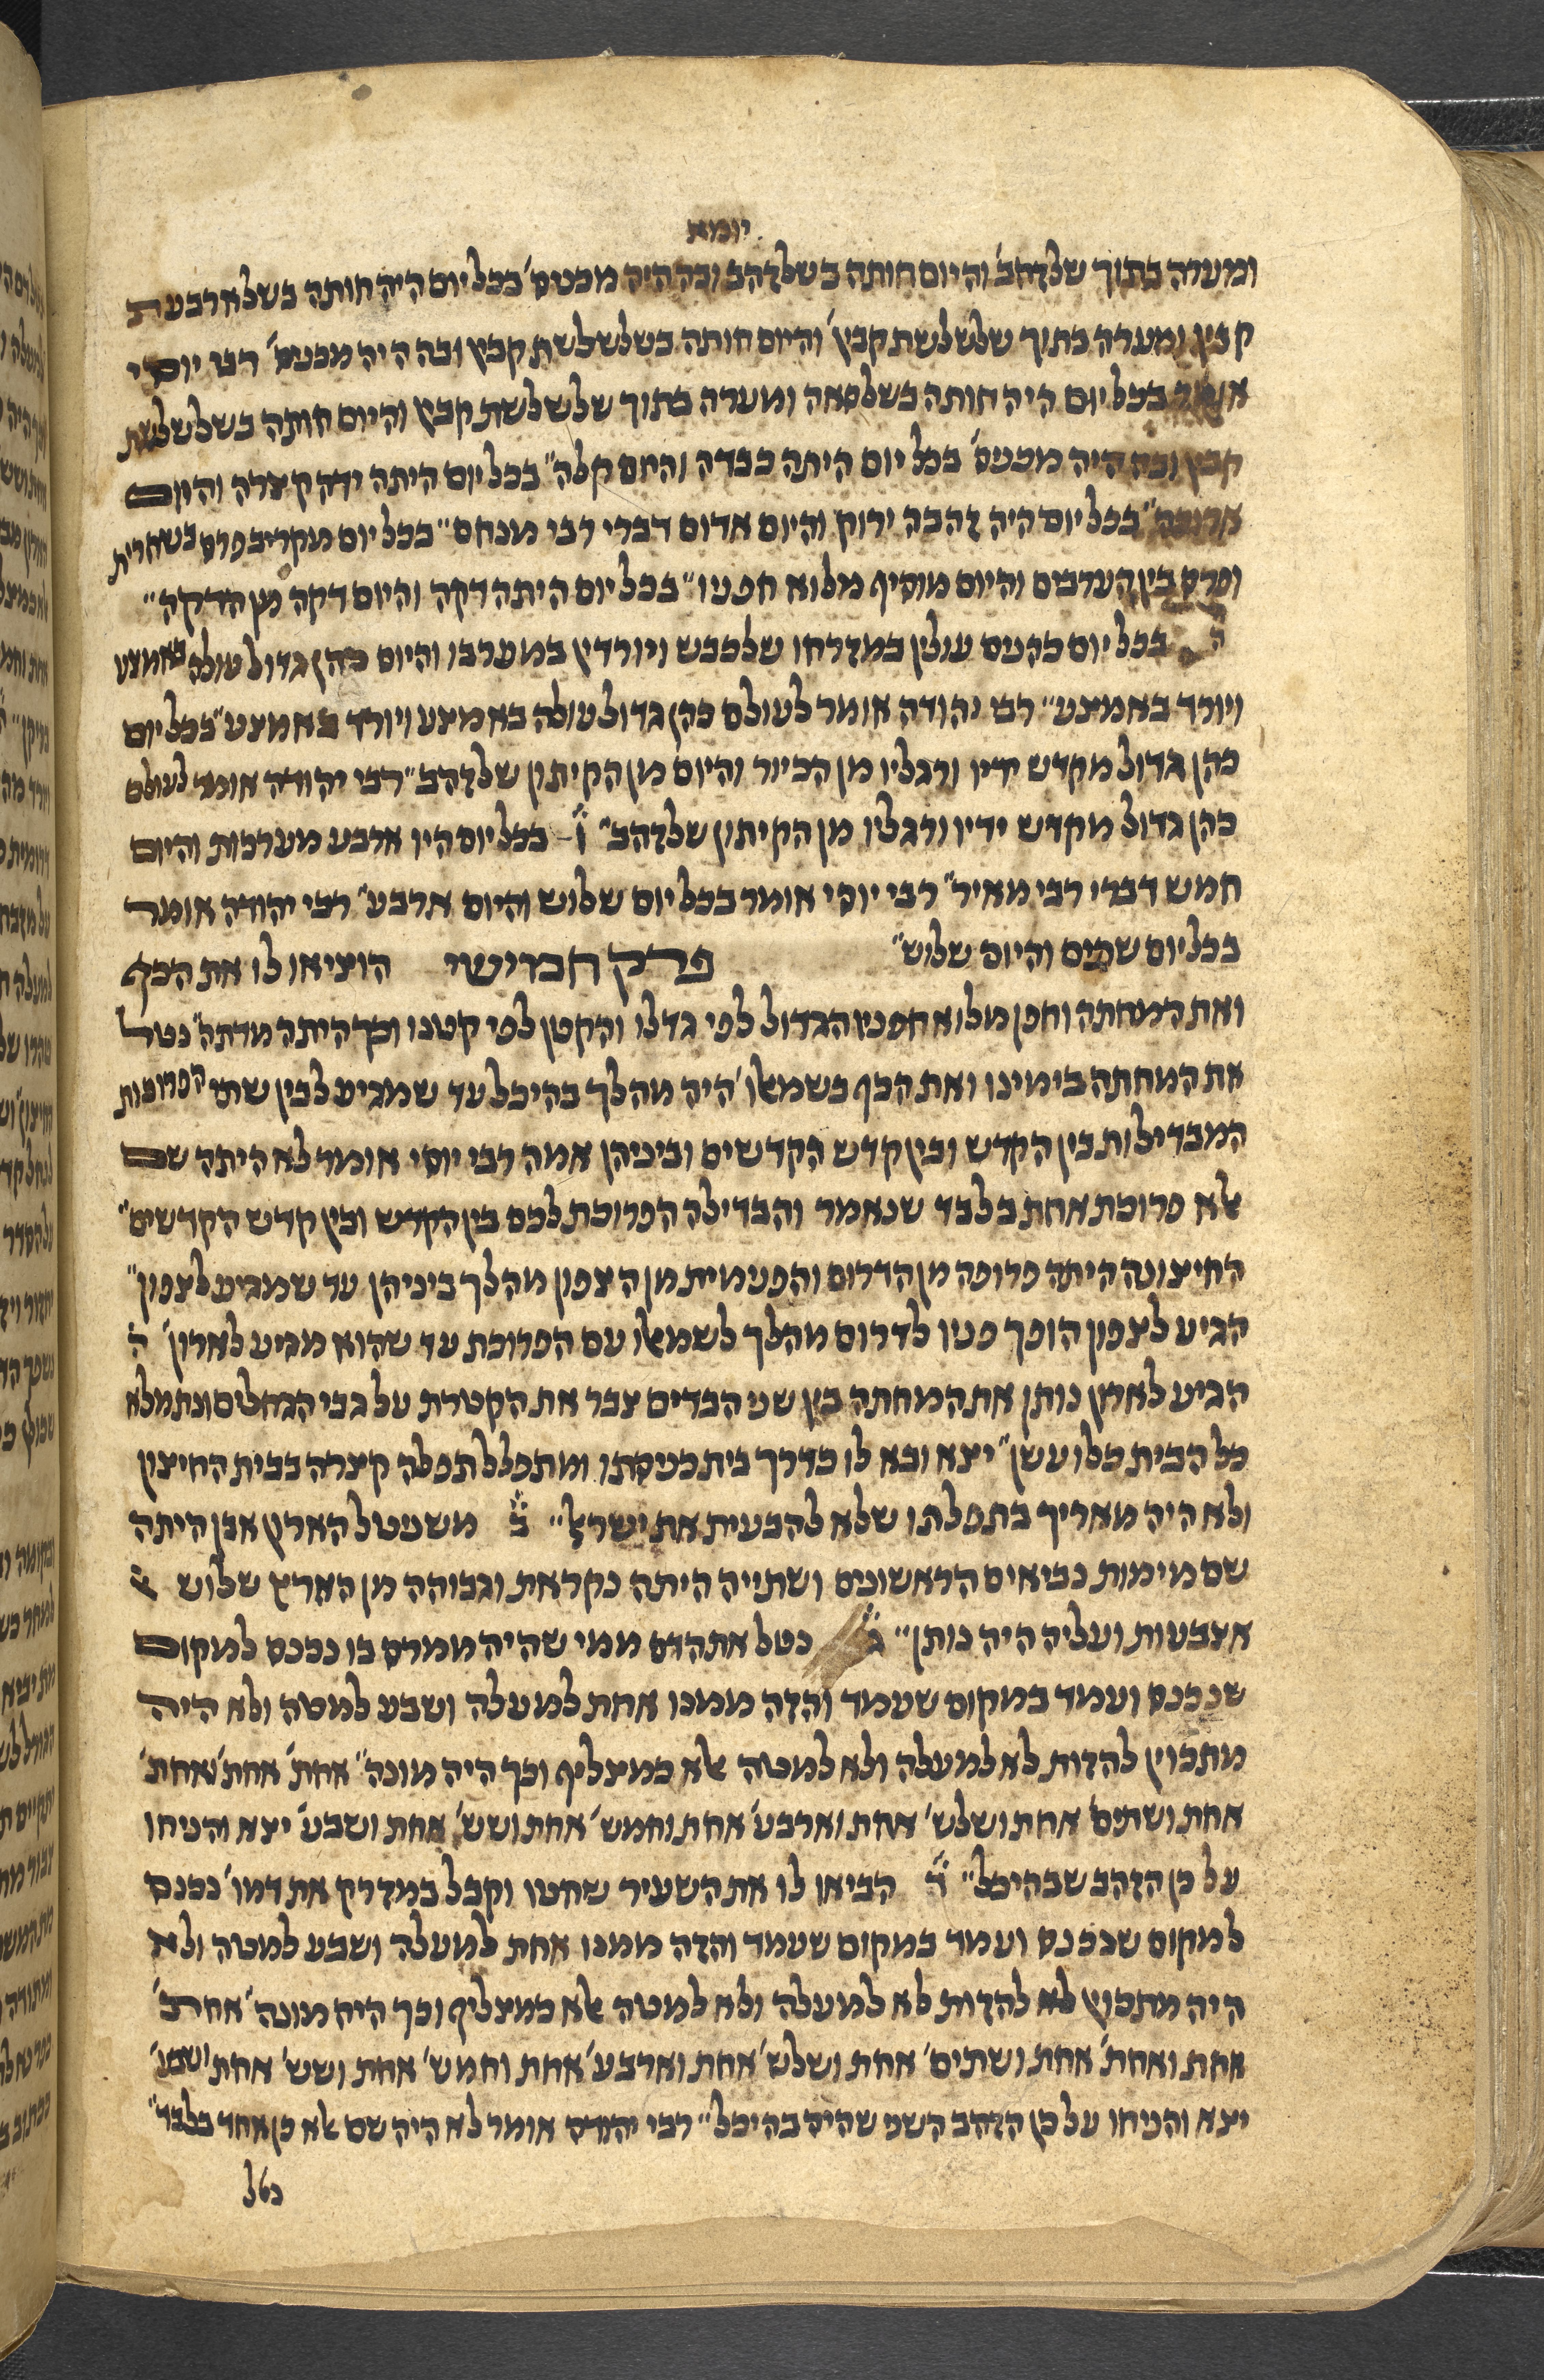 יומא
ומערה בתוך שלזהב׳ והיום חותה בשלזהב ובה היה מכניס׳ בכל יום היה חותה בשלארבעת
קבין ומערה בתוך שלשלשת קבין׳ והיום חותה בשלשלשת קבין ובה היה מכניס׳ רבי יוסי
אומר בכל יום היה חותה בשלסאה ומערה בתוך שלשלשת קבין והיום חותה בשלשלשת
קבין ובה היה מכניס׳ בכל יום היתה כבדה והיום קלה״ בכל יום היתה ידה קצרה והיום
ארוכה״ בכל יום היה זהבה ירוק והיום אדום דברי רבי מנחם״ בכל יום מקריב פרס בשחרית
ופרס בין הערבים והיום מוסיף מלוא חפניו״ בכל יום היתה דקה והיום דקה מן הדקה״
ה בכל יום כהנים עולין במזרחו שלכבש ויורדין במערבו והיום כהן גדול עולה באמצע
ויורד באמצע״ רבי יהודה אומר לעולם כהן גדול עולה באמצע ויורד באמצע״ בכל יום
כהן גדול מקדש ידיו ורגליו מן הכיור והיום מן הקיתון שלזהב״ רבי יהודה אומר לעולם
כהן גדול מקדש ידיו ורגליו מן הקיתון שלזהב״ ו בכל יום היו ארבע מערכות והיום
חמש דברי רבי מאיר״ רבי יוסי אומר בכל יום שלוש והיום ארבע״ רבי יהודה אומר
בכל יום שתים והיום שלוש״ פרק חמישי הוציאו לו את הכף
ואת המחתה וחפן מלוא חפניו הגדול לפי גדלו והקטן לפי קטנו וכך היתה מדתה״ נטל
את המחתה בימינו ואת הכף בשמאלו׳ היה מהלך בהיכל עד שמגיע לבין שתי הפרוכות
המבדילות בין הקדש ובין קדש הקדשים וביניהן אמה רבי יוסי אומר לא היתה שם
אלא פרוכת אחת בלבד שנאמר והבדילה הפרוכת לכם בין הקדש ובין קדש הקדשים״
החיצונה היתה פרופה מן הדרום והפנימית מן הצפון מהלך ביניהן עד שמגיע לצפון״
הגיע לצפון הופך פניו לדרום מהלך לשמאלו עם הפרוכת עד שהוא מגיע לארון׳ ה
הגיע לארון נותן את המחתה בין שני הבדים צבר את הקטרת על גבי הגחלים ונתמלא
כל הבית כלו עשן״ יצא ובא לו בדרך בית כניסתו ומתפלל תפלה קצרה בבית החיצון
ולא היה מאריך בתפלתו שלא להבעית את ישראל״ ב משניטל הארון אבן היתה
שם מימות נביאים הראשונים ושתייה היתה נקראת וגבוהה מן הארץ שלוש
אצבעות ועליה היה נותן״ ג נטל את הדם ממי שהיה ממרס בו נכנס למקום
שנכנס ועמד במקום שעמד והזה ממנו אחת למעלה ושבע למטה ולא היה
מתכוין להזות לא למעלה ולא למטה אלא כמצליף וכך היה מונה״ אחת׳ אחת׳ ואחת׳
אחת ושתים׳ אחת ושלש׳ אחת וארבע׳ אחת וחמש׳ אחת ושש׳ אחת ושבע׳ יצא והניחו
על כן הזהב שבהיכל״ ד הביאו לו את השעיר שחטו וקבל במזרק את דמו׳ נכנס
למקום שנכנס ועמד במקום שעמד והזה ממנו אחת למעלה ושבע למטה ולא
היה מתכוין לא להזות לא למעלה ולא למטה אלא כמצליף וכך היה מונה׳ אחת׳
אחת ואחת׳ אחת ושתים׳ אחת ושלש׳ אחת וארבע׳ אחת וחמש׳ אחת ושש׳ אחת ושבע׳
יצא והניחו על כן הזהב השני שהיה בהיכל״ רבי יהודה אומר לא היה שם אלא כן אחד בלבד״
נטל